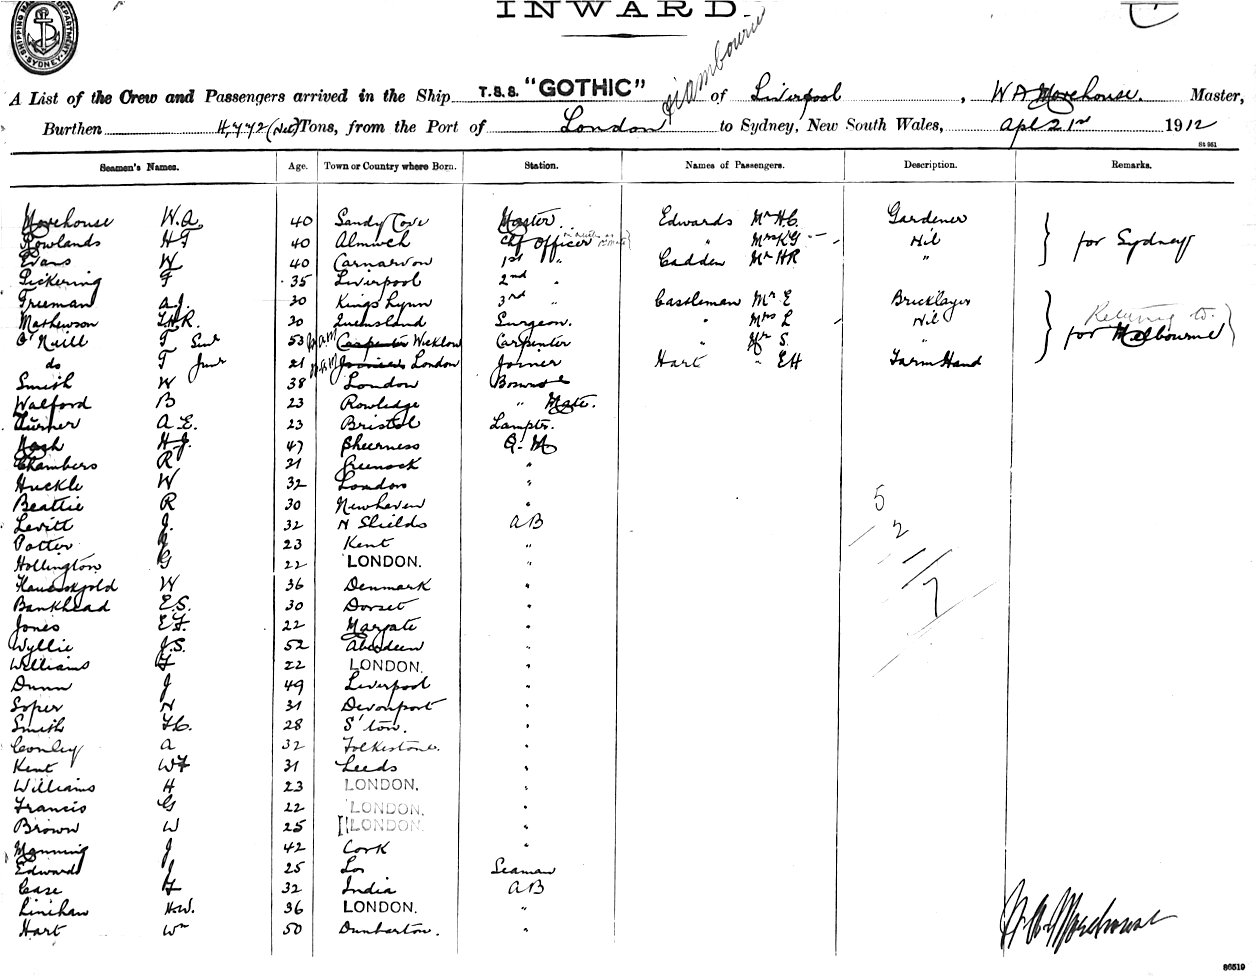 INWARD.
SHIPPING MA DEPARTMENT. SYDNEY.
A List of the Crew and Passengers arrived in the Ship T.S.S. "GOTHIC" of Liverpool, W A Morehouse. Master,
Burthen 4,772 (Net) Tons, from the Port of London to Sydney, New South Wales, Apl 21st 1912
St 951
Seamen's Names. Age. Town or Country where Born. Station. Names of Passengers. Description. Remarks.
Morehouse W.A. 40 Sandy Cove Master Edwards Mr H.C. Gardener
Rowlands H F 40 Almwch Chf Officer " Mrs K G Nil for Sydney
Evans W 40 Carnarvon 1st " Cadden Mr HR "
Pickering F 35 Liverpool 2nd "
Freeman A.J. 30 Kings Lynn 3rd " Castleman Mr E Bricklayer
Mathewson 30 Queensland Surgeon. " Mrs L Nil Returning to
O'Neill F Senr 53 Carpenter Wicklow Carpenter " Mr S. " for Melbourne
do F Junr 21 Joiner London Joiner Hart " EH Farm Hand
Smith W 38 London
Walford B 23 Rowledge " Mate.
Turner A E. 23 Bristol Lamptr.
Nash H J. 47 Sheerness Q. M
Chambers R 21 Greenock "
Huckle W 32 London "
Beattie R 30 Newhaven "
Levitt J. 32 N Shields AB
Potter J 23 Kent "
Hollington G 22 LONDON. "
W 36 Denmark "
Bankhead E.S. 30 Dorset "
Jones E F. 22 Margate "
Wyllie J.S. 52 Aberdeen "
Williams F 22 LONDON. "
Dunn J 49 Liverpool "
Soper N 31 Devonport "
Smith F.C. 28 S'ton. "
Conley A 32 Folkestone. "
Kent W F 31 Leeds "
Williams H 23 LONDON. "
Francis G 22 LONDON. "
Brown W 25 LONDON. "
Manning J 42 Cork "
Edward J 25 Seaman
Case F 32 India AB
Linihan H.W. 36 LONDON. "
Hart Wm 50 Dunbarton. "
5
2
7
W A Morehouse
86519